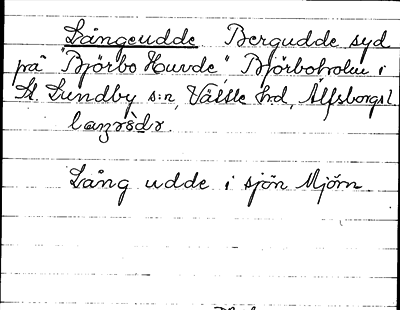 Långeudde Bergudde syd
på "Björbo Huvde", Björboholm i
St. Lundby s:n, Vättle hd, Älfsborgs l.
laŋrùdr.
Lång udde i sjön Mjörn